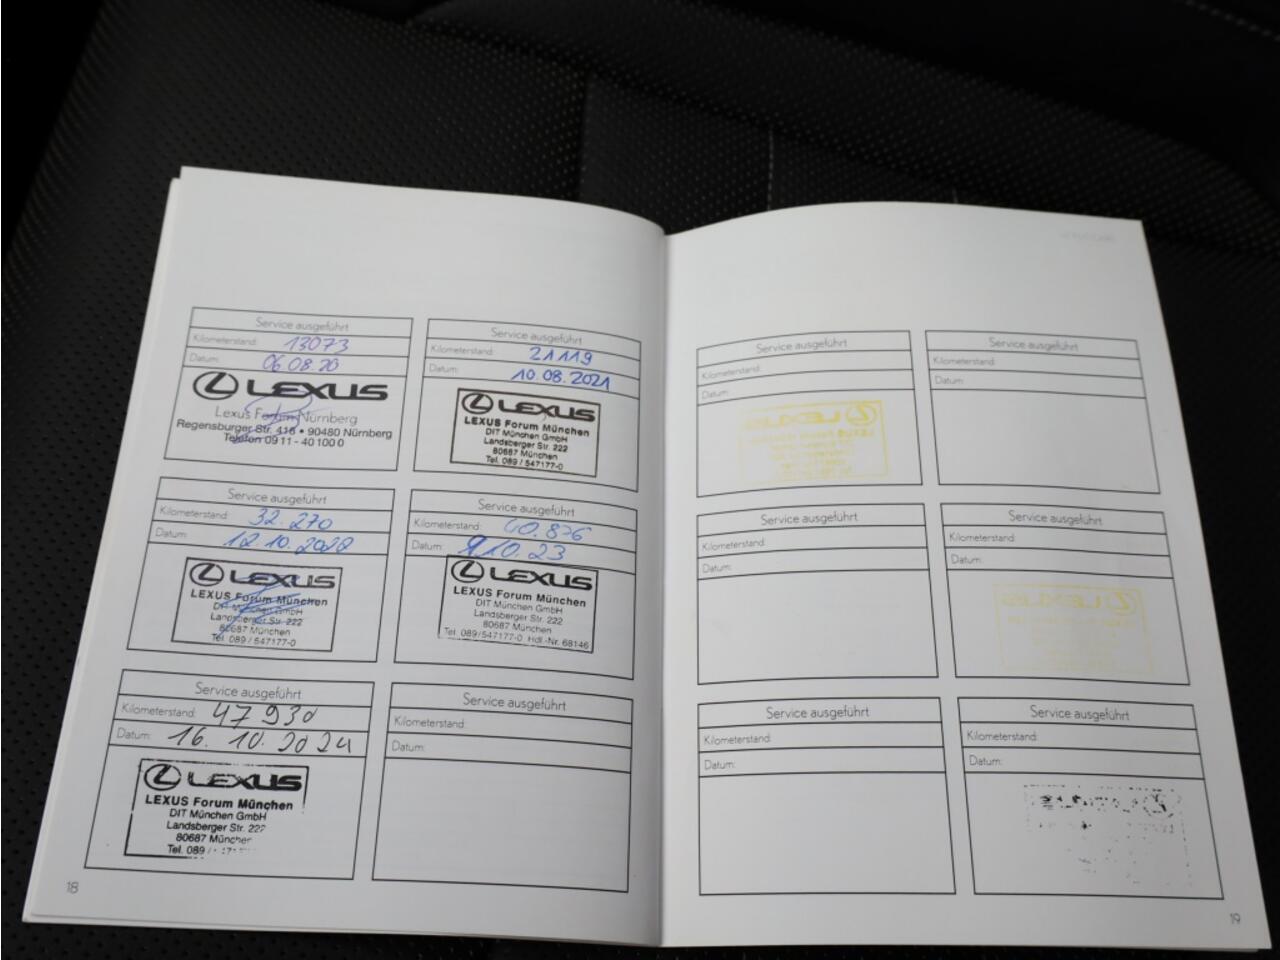 Service ausgeführt
Kilometerstand: 13073
Datum: 06.08.20
LEXUS
Lexus Forum Nürnberg
Regensburger Str. 418 • 90480 Nürnberg
Telefon 09 11 - 40 100 0
Service ausgeführt
Kilometerstand: 21119
Datum: 10.08.2021
LEXUS
LEXUS Forum München
DIT München GmbH
Landsberger Str. 222
80687 München
Tel. 089 / 547177-0
Service ausgeführt
Kilometerstand: 32.270
Datum: 12.10.2022
LEXUS
LEXUS Forum München
DIT München GmbH
Landsberger Str. 222
80687 München
Tel. 089 / 547177-0
Service ausgeführt
Kilometerstand: 40.876
Datum: 9.10.23
LEXUS
LEXUS Forum München
DIT München GmbH
Landsberger Str. 222
80687 München
Tel. 089/547177-0 Hdl.-Nr. 68146
Service ausgeführt
Kilometerstand: 47930
Datum: 16.10.2024
LEXUS
LEXUS Forum München
DIT München GmbH
Landsberger Str. 222
80687 München
Tel. 089 /
Service ausgeführt
Kilometerstand:
Datum:
18
Service ausgeführt
Kilometerstand:
Datum:
Service ausgeführt
Kilometerstand:
Datum:
Service ausgeführt
Kilometerstand:
Datum:
Service ausgeführt
Kilometerstand:
Datum:
Service ausgeführt
Kilometerstand:
Datum:
Service ausgeführt
Kilometerstand:
Datum:
19